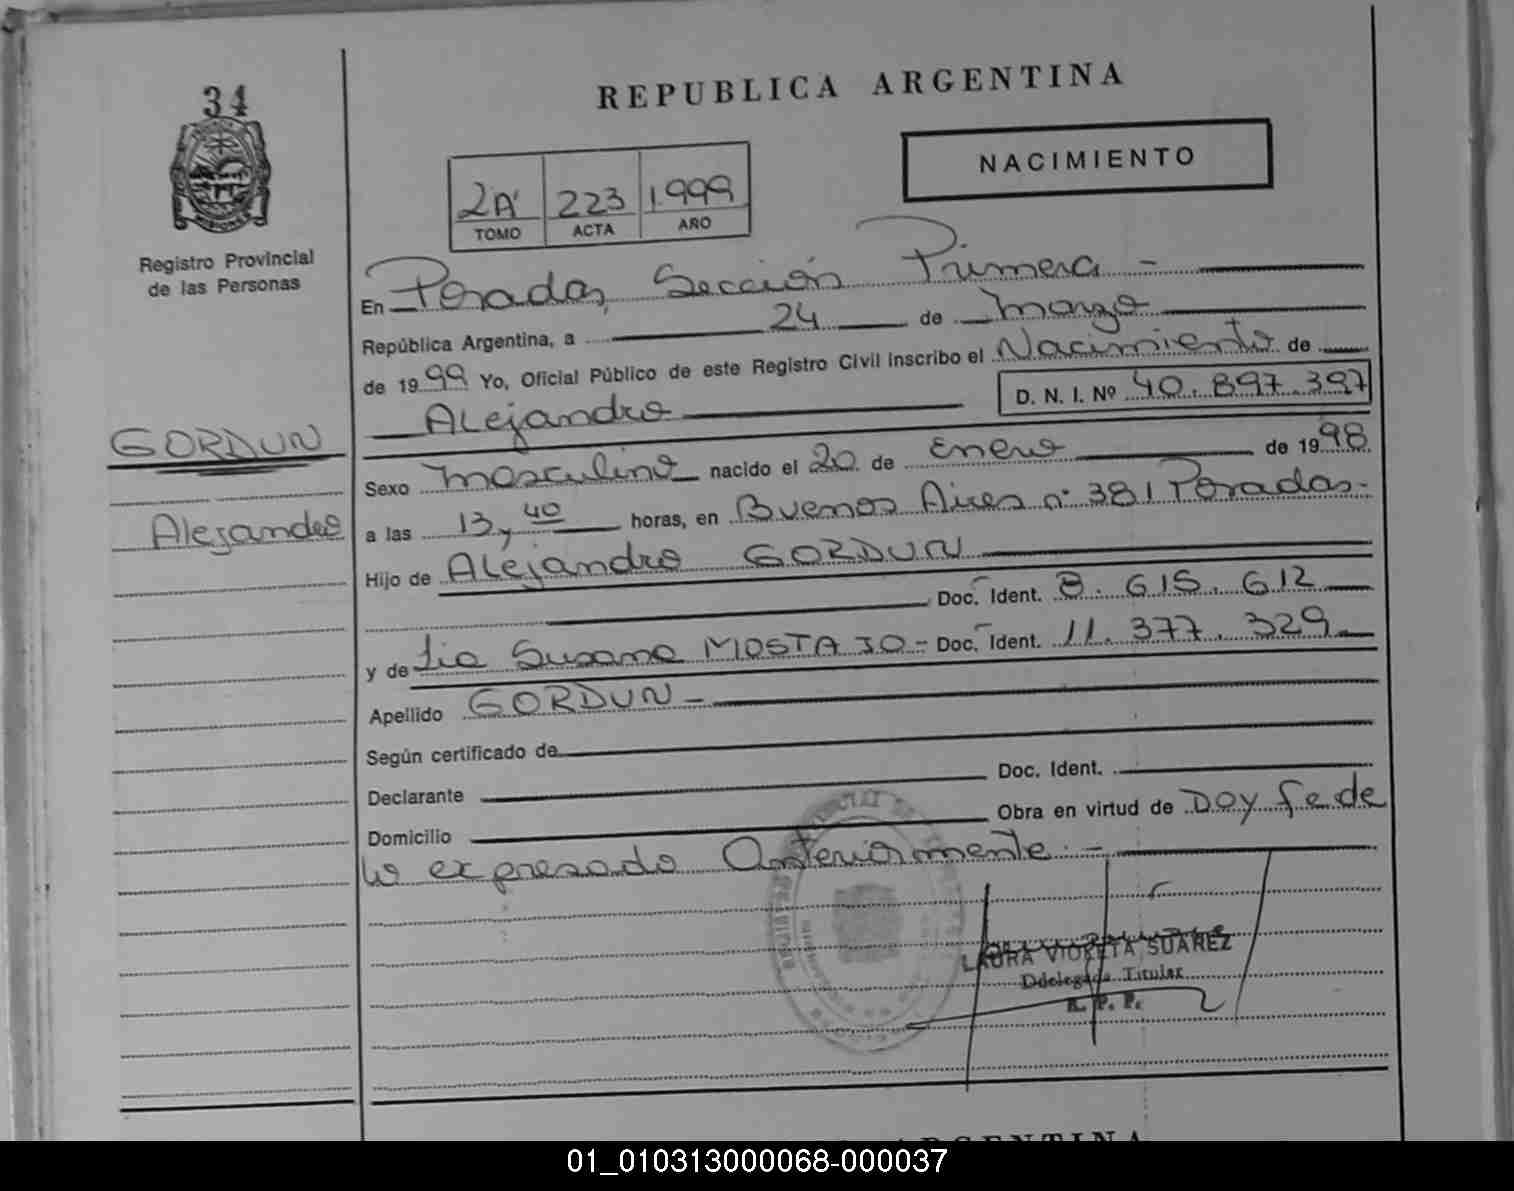 34
Registro Provincial
de las Personas
REPUBLICA ARGENTINA
NACIMIENTO
2A' 223 1.999
TOMO ACTA AÑO
En Posadas, Sección Primera -
República Argentina, a 24 de marzo
de 1999 Yo, Oficial Público de este Registro Civil inscribo el Nacimiento de
D. N. I. Nº 40.897.397
Alejandro
GORDUN
Alejandro
Sexo masculino nacido el 20 de enero de 1998
a las 13,40 horas, en Buenos Aires nº 381 Posadas-
Hijo de Alejandro GORDUN
Doc. Ident. 8.615.612
y de Lia Susana MOSTAJO- Doc. Ident. 11.377.329
Apellido GORDUN-
Según certificado de
Doc. Ident.
Declarante
Domicilio Obra en virtud de Doy fe de
lo expresado Anteriormente.-
LAURA VIOLETA SUAREZ
Ddelegada Titular
R. P. P.
ARGENTINA
01_010313000068-000037